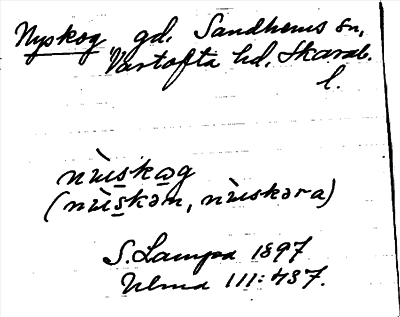 Nyskog gd, Sandhems sn,
Vartofta hd, Skarab.
l.
nùiskog
(nùiskən, nùiskəra)
S. Lampa 1897
Ulma 111:437.